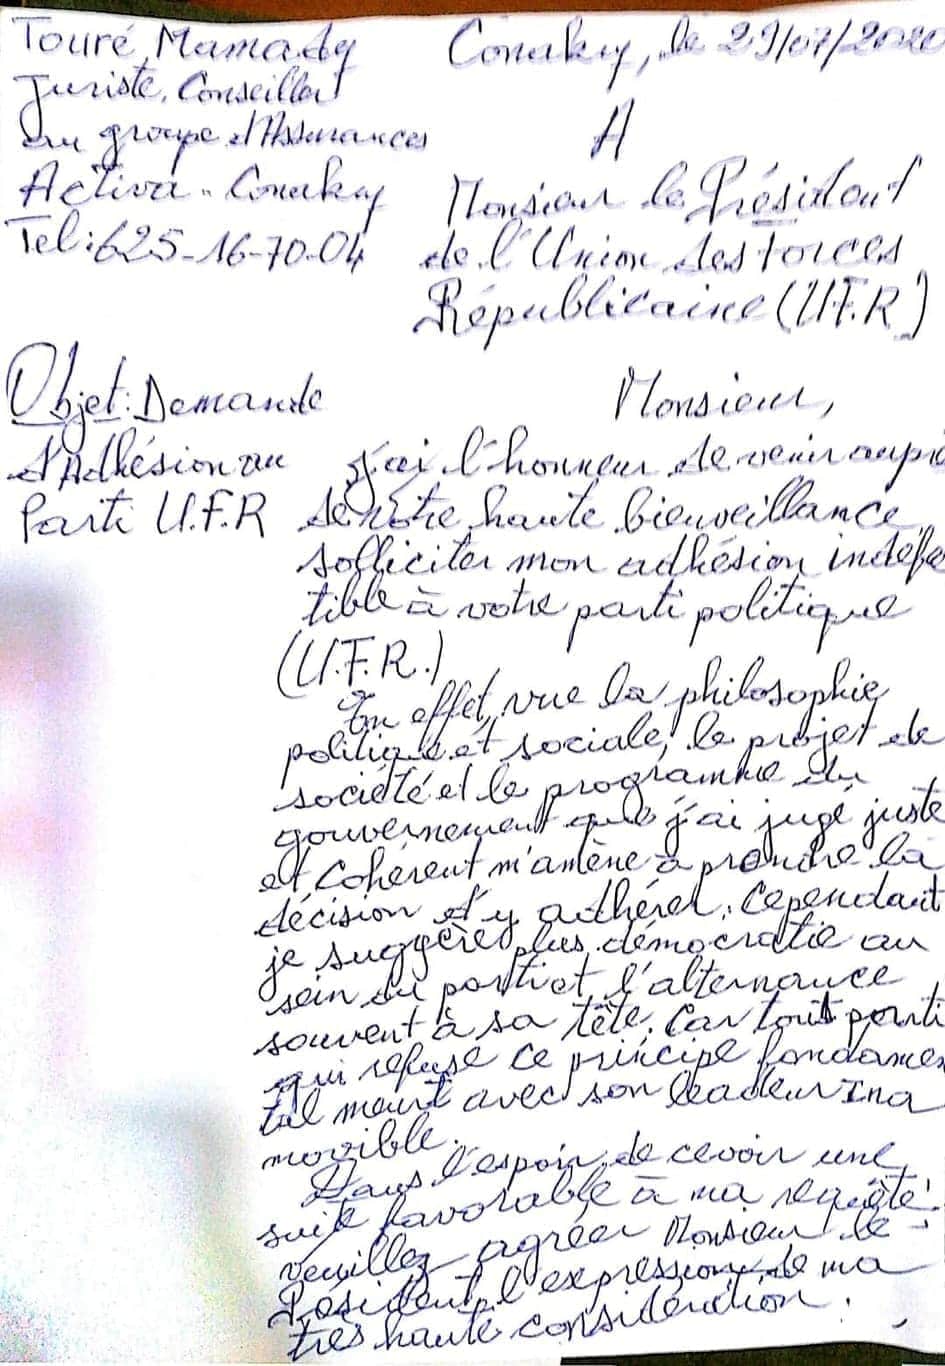 Touré Mamady
Conakry, le 29/07/2020
Juriste, Conseiller
du groupe d'Assurances
Activa - Conakry
Tel: 625-16-70-04
A
Monsieur le Président
de l'Union des forces
Républicaine (U.F.R)
Objet: Demande
d'Adhésion au
Parti U.F.R
Monsieur,
j'ai l'honneur de venir auprè
de votre haute bienveillance
solliciter mon adhésion indéfec
tible à votre parti politique
(U.F.R.)
En effet, vue la philosophie
politique et sociale, le projet de
société et le programme du
gouvernement que j'ai jugé juste
et cohérent m'amène à prendre la
décision d'y adhérer. Cependant
je suggère plus démocratie au
sein du parti et l'alternance
souvent à sa tête. Car tout parti
qui refuse ce principe fondamen
tal meurt avec son leader Ina
movible.
Dans l'espoir de cevoir une
suite favorable à ma requête
veuillez agréer Monsieur le
Président l'expression de ma
très haute considération.